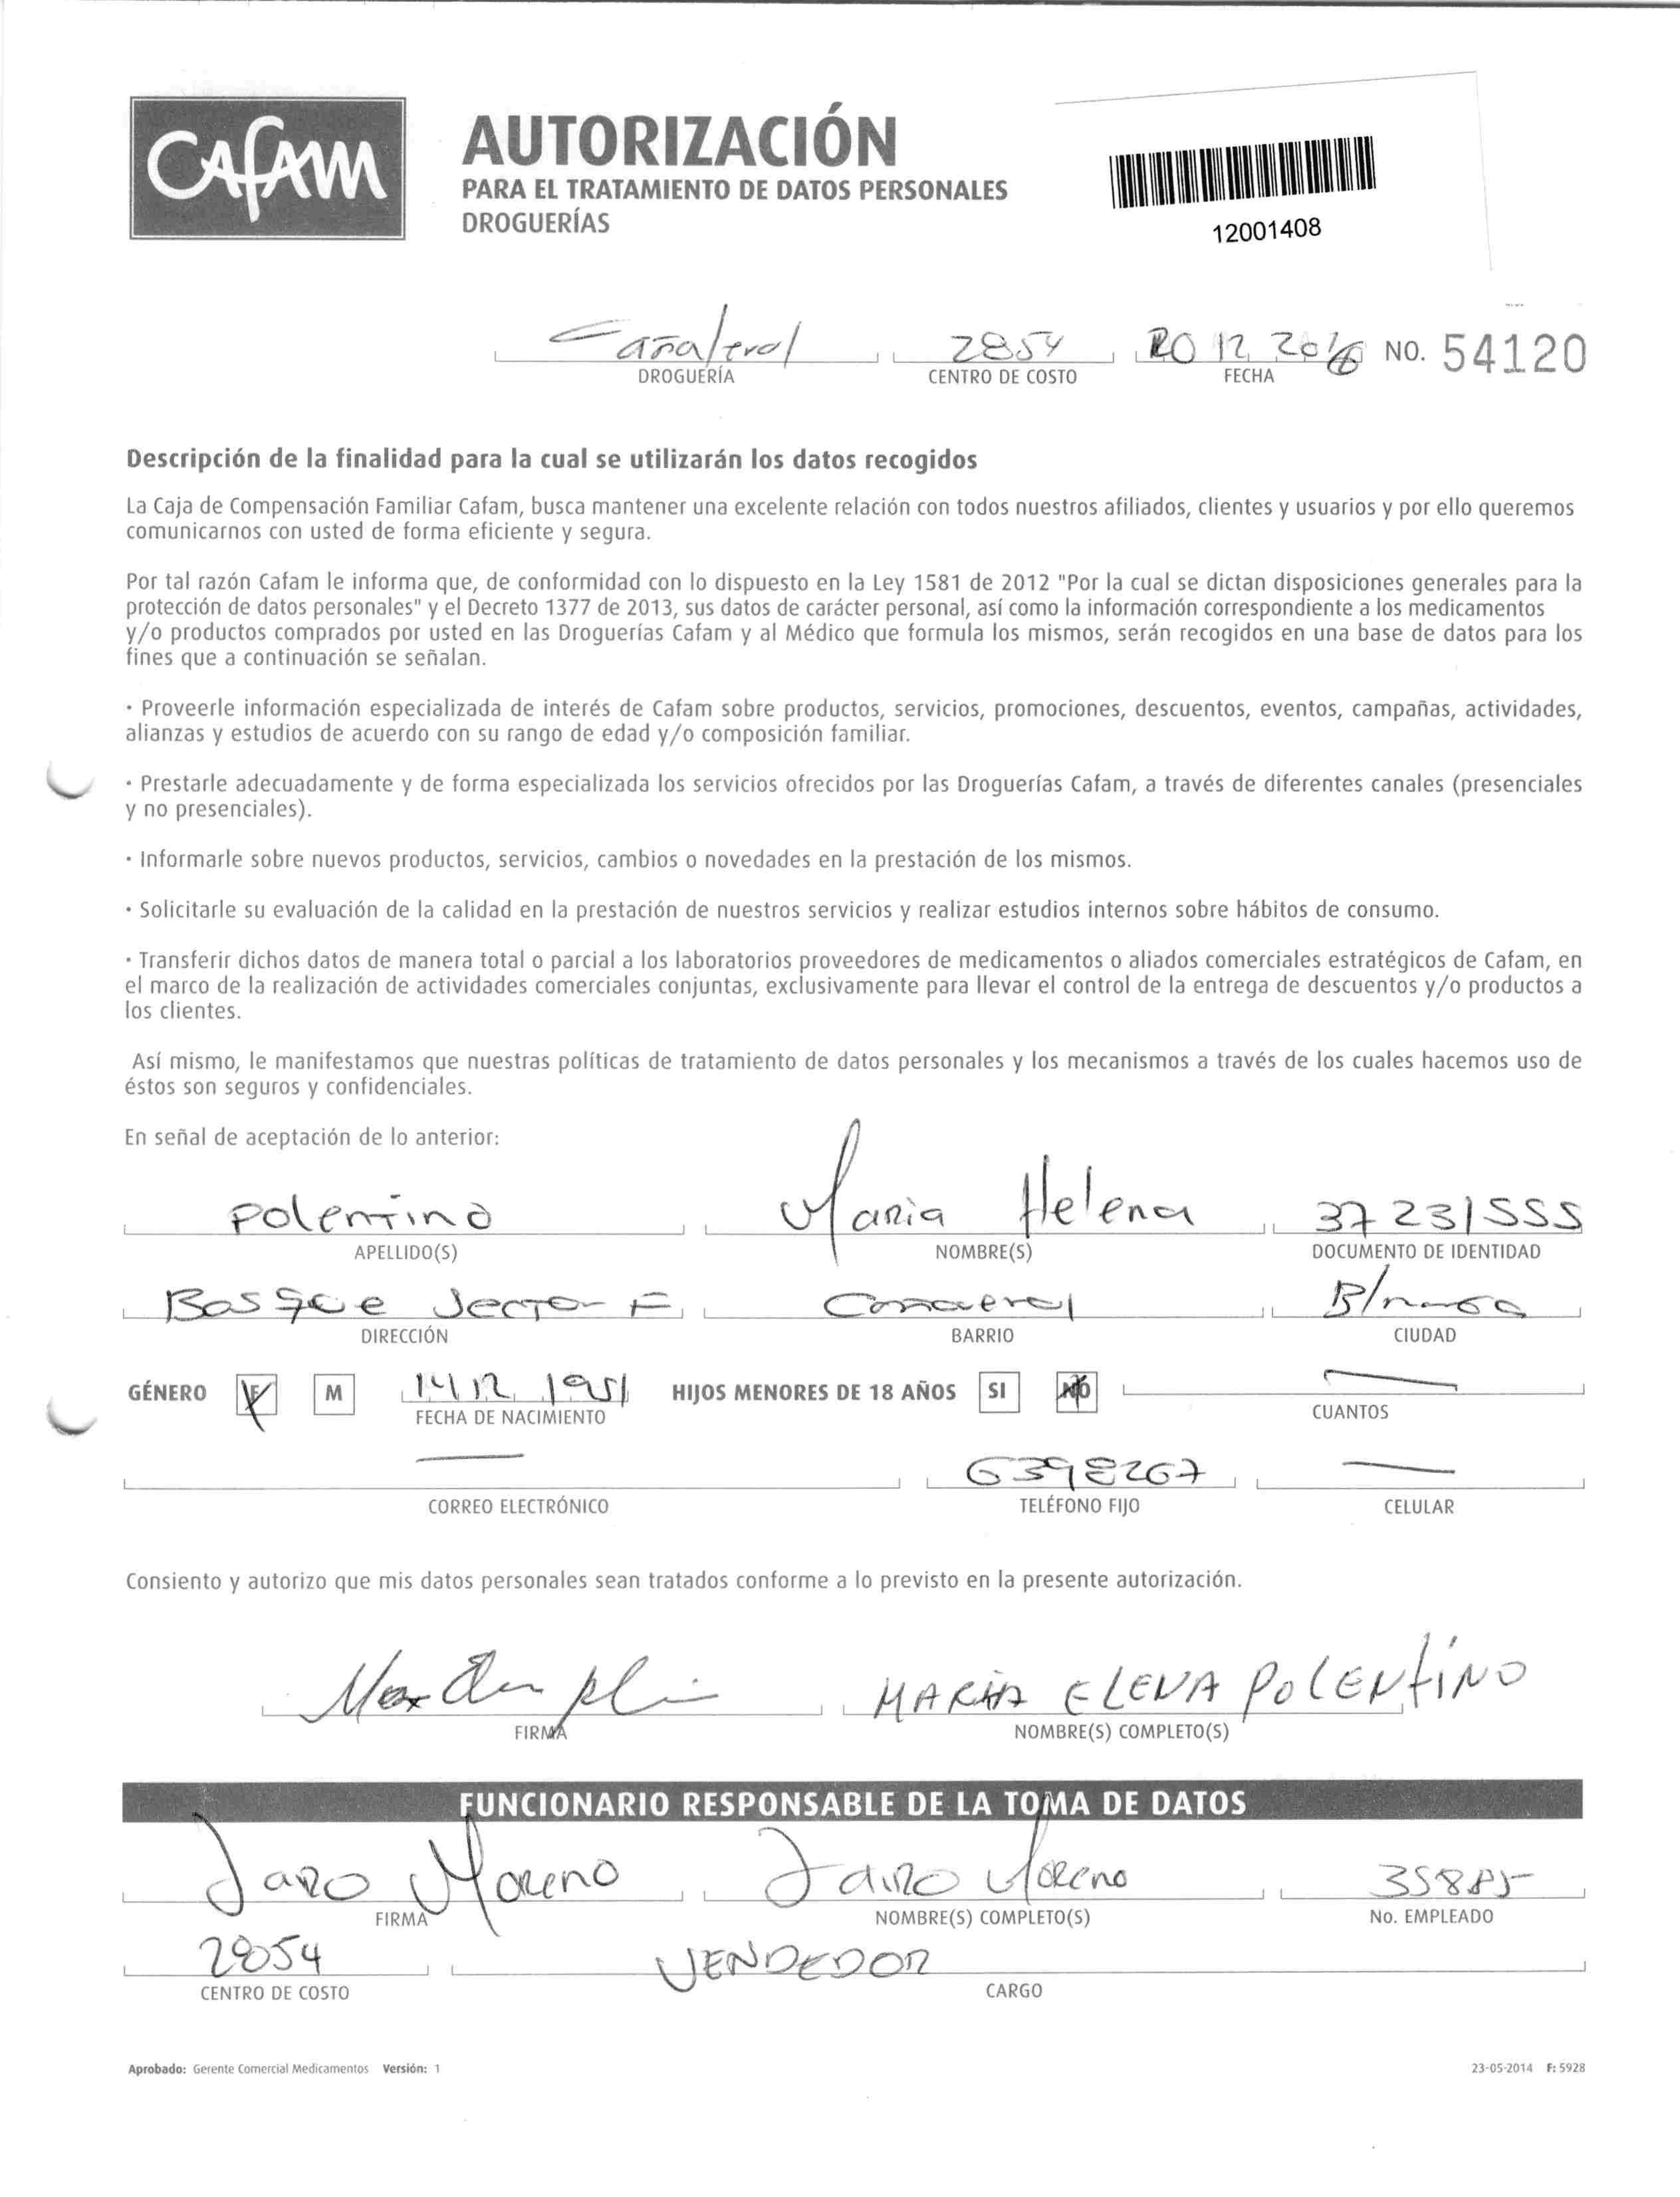 CAFAM
AUTORIZACIÓN
PARA EL TRATAMIENTO DE DATOS PERSONALES
DROGUERÍAS
12001408
Cañaveral 2854 20 12 2016 NO. 54120
DROGUERÍA CENTRO DE COSTO FECHA
Descripción de la finalidad para la cual se utilizarán los datos recogidos
La Caja de Compensación Familiar Cafam, busca mantener una excelente relación con todos nuestros afiliados, clientes y usuarios y por ello queremos
comunicarnos con usted de forma eficiente y segura.
Por tal razón Cafam le informa que, de conformidad con lo dispuesto en la Ley 1581 de 2012 "Por la cual se dictan disposiciones generales para la
protección de datos personales" y el Decreto 1377 de 2013, sus datos de carácter personal, así como la información correspondiente a los medicamentos
y/o productos comprados por usted en las Droguerías Cafam y al Médico que formula los mismos, serán recogidos en una base de datos para los
fines que a continuación se señalan.
· Proveerle información especializada de interés de Cafam sobre productos, servicios, promociones, descuentos, eventos, campañas, actividades,
alianzas y estudios de acuerdo con su rango de edad y/o composición familiar.
· Prestarle adecuadamente y de forma especializada los servicios ofrecidos por las Droguerías Cafam, a través de diferentes canales (presenciales
y no presenciales).
· Informarle sobre nuevos productos, servicios, cambios o novedades en la prestación de los mismos.
· Solicitarle su evaluación de la calidad en la prestación de nuestros servicios y realizar estudios internos sobre hábitos de consumo.
· Transferir dichos datos de manera total o parcial a los laboratorios proveedores de medicamentos o aliados comerciales estratégicos de Cafam, en
el marco de la realización de actividades comerciales conjuntas, exclusivamente para llevar el control de la entrega de descuentos y/o productos a
los clientes.
Así mismo, le manifestamos que nuestras políticas de tratamiento de datos personales y los mecanismos a través de los cuales hacemos uso de
éstos son seguros y confidenciales.
En señal de aceptación de lo anterior:
Polentino Maria Helena 37231555
APELLIDO(S) NOMBRE(S) DOCUMENTO DE IDENTIDAD
Bosque Sector F
DIRECCIÓN BARRIO CIUDAD
GÉNERO F M 14 12 1951 HIJOS MENORES DE 18 AÑOS SI NO —
FECHA DE NACIMIENTO CUANTOS
— 6398267 —
CORREO ELECTRÓNICO TELÉFONO FIJO CELULAR
Consiento y autorizo que mis datos personales sean tratados conforme a lo previsto en la presente autorización.
MARIA ELENA POLENTINO
FIRMA NOMBRE(S) COMPLETO(S)
FUNCIONARIO RESPONSABLE DE LA TOMA DE DATOS
Jairo Moreno Jairo Moreno 35885
FIRMA NOMBRE(S) COMPLETO(S) No. EMPLEADO
2854 VENDEDOR
CENTRO DE COSTO CARGO
Aprobado: Gerente Comercial Medicamentos Versión: 1 23-05-2014 F: 5928